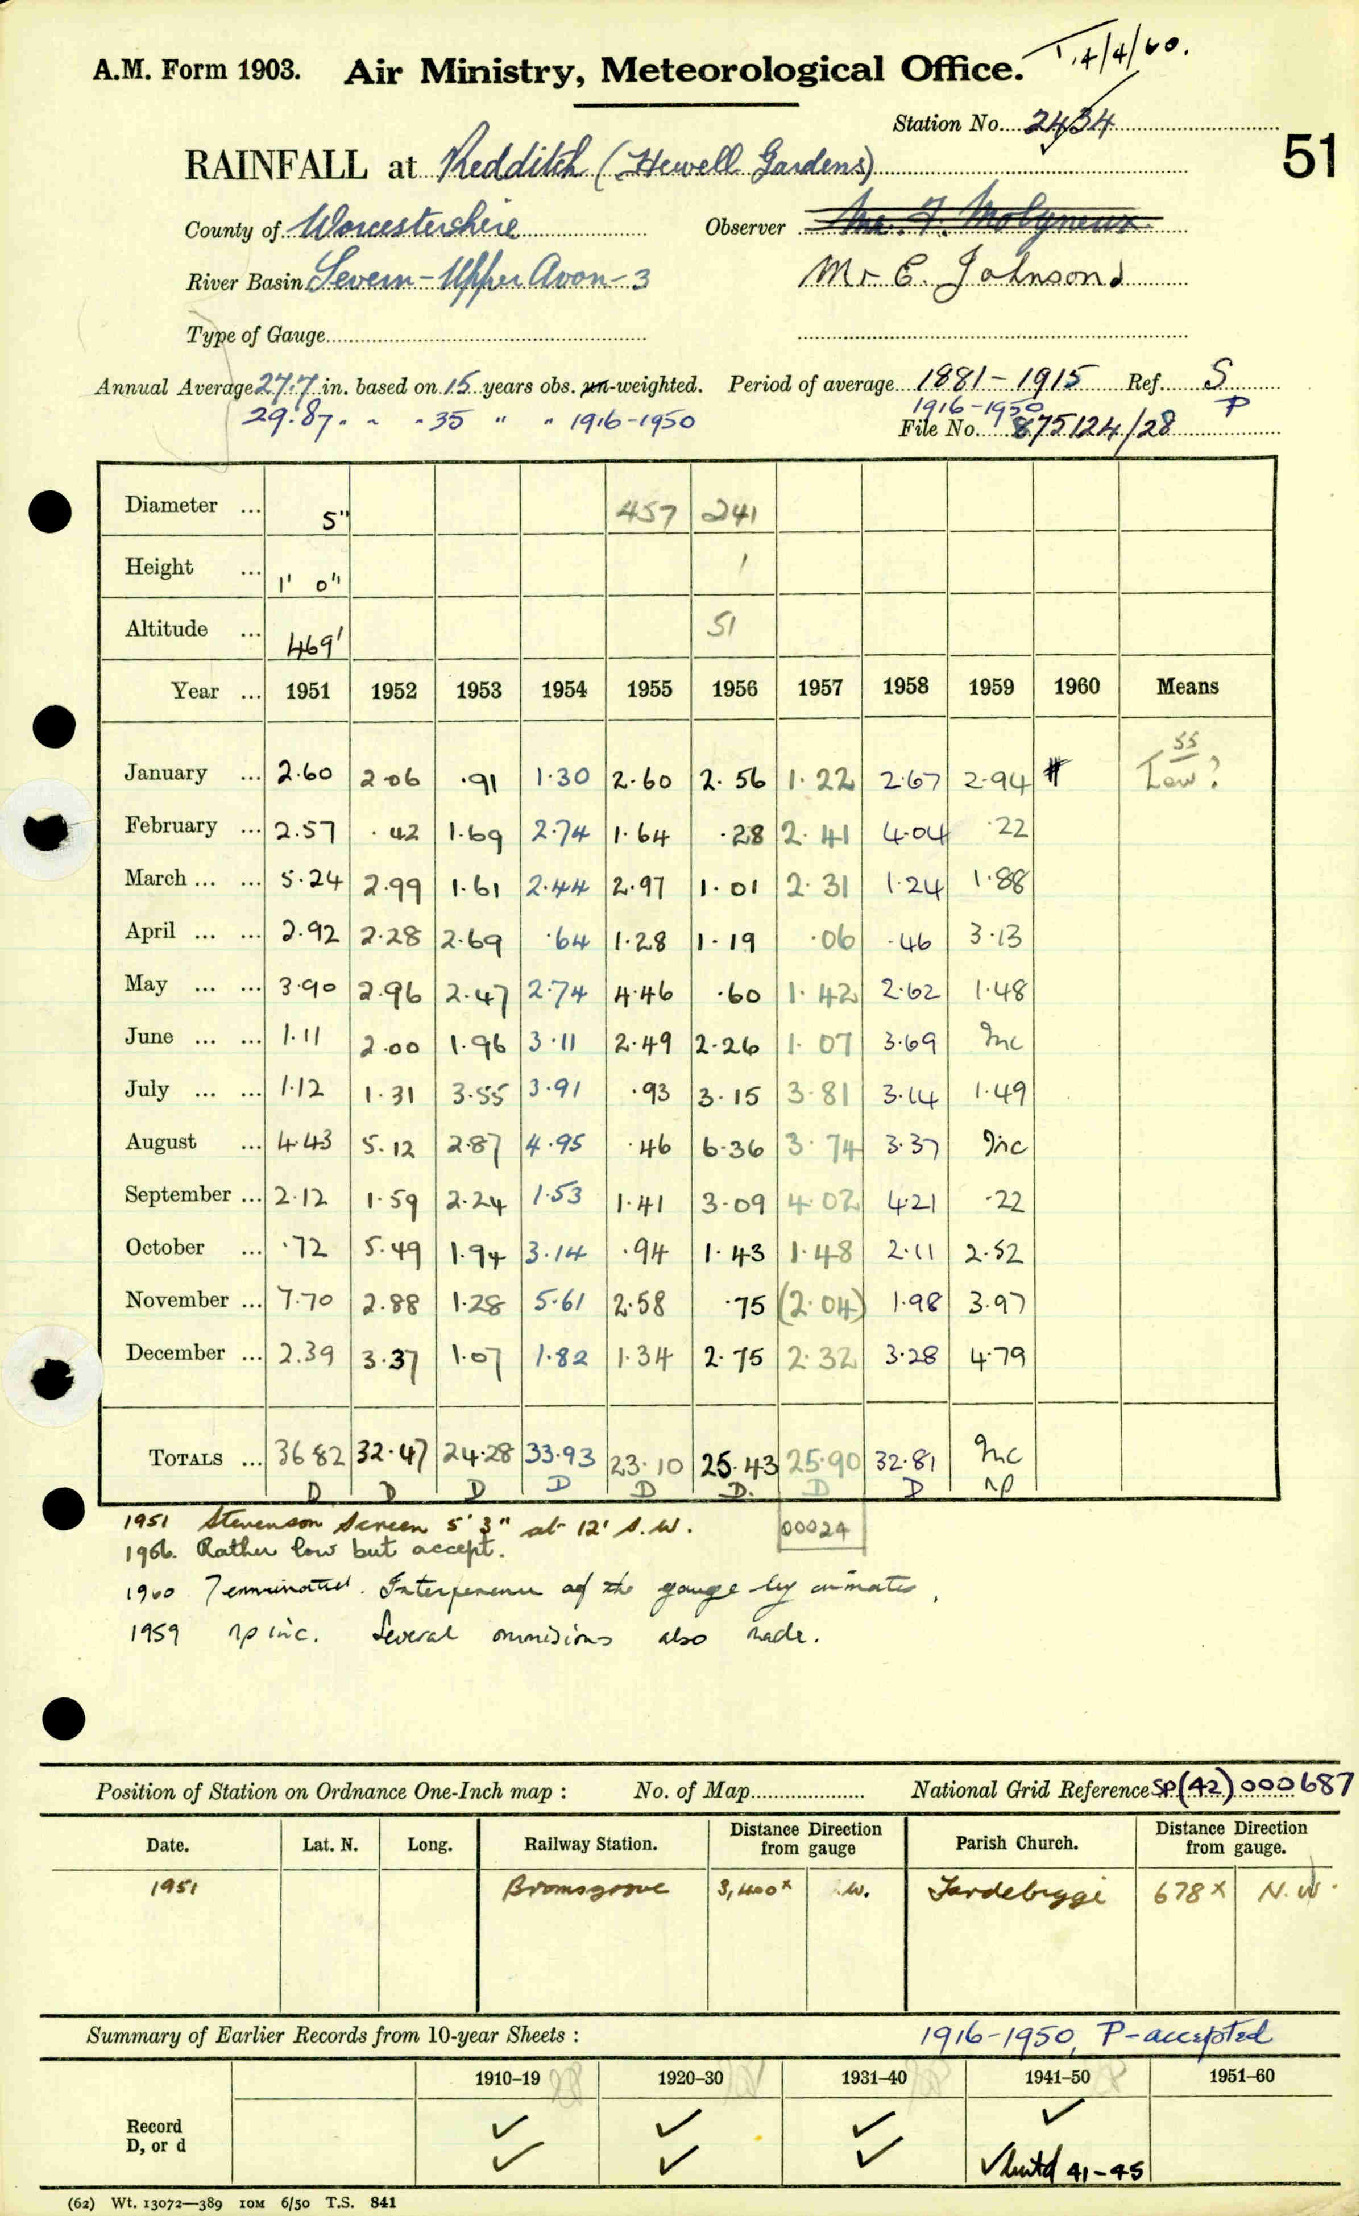 A.M. Form 1903. Air Ministry, Meteorological Office. T.4/4/60.
Station No. 2434
51
RAINFALL at Redditch (Hewell Gardens)
County of Worcestershire Observer Mr. F. Molyneux
River Basin Severn-Upper Avon-3 Mr E. Johnson
Type of Gauge
Annual Average 27.7 in. based on 15 years obs. un-weighted. Period of average 1881-1915 Ref. S
29.87 " " 35 " " 1916-1950 1916-1950 P
File No. 875124/28
Diameter ... 5" 457 241
Height ... 1' 0" 1
Altitude ... 469' 51
Year ... 1951 1952 1953 1954 1955 1956 1957 1958 1959 1960 Means
55
January ... 2.60 2.06 .91 1.30 2.60 2.56 1.22 2.67 2.94 # Low?
February ... 2.57 .42 1.69 2.74 1.64 .28 2.41 4.04 .22
March ... ... 5.24 2.99 1.61 2.44 2.97 1.01 2.31 1.24 1.88
April ... ... 2.92 2.28 2.69 .64 1.28 1.19 .06 .46 3.13
May ... ... 3.90 2.96 2.47 2.74 4.46 .60 1.42 2.62 1.48
June ... ... 1.11 2.00 1.96 3.11 2.49 2.26 1.07 3.69 Inc
July ... ... 1.12 1.31 3.55 3.91 .93 3.15 3.81 3.14 1.49
August ... 4.43 5.12 2.87 4.95 .46 6.36 3.74 3.37 Inc
September ... 2.12 1.59 2.24 1.53 1.41 3.09 4.02 4.21 .22
October ... .72 5.49 1.94 3.14 .94 1.43 1.48 2.11 2.52
November ... 7.70 2.88 1.28 5.61 2.58 .75 (2.04) 1.98 3.97
December ... 2.39 3.37 1.07 1.82 1.34 2.75 2.32 3.28 4.79
TOTALS ... 36.82 32.47 24.28 33.93 23.10 25.43 25.90 32.81 Inc
D D D D D D. D D np
1951 Stevenson Screen 5' 3" at 12' S.W. 00024
1956. Rather low but accept.
1960 Terminated. Interference of the gauge by inmates.
1959 np inc. Several ommisions also made.
Position of Station on Ordnance One-Inch map : No. of Map National Grid Reference SP(42)000687
Date. Lat. N. Long. Railway Station. Distance Direction from gauge Parish Church. Distance Direction from gauge.
1951 Bromsgrove 3,400x W. Tardebigge 678x N.W.
Summary of Earlier Records from 10-year Sheets : 1916-1950, P-accepted
1910-19 1920-30 1931-40 1941-50 1951-60
Record ✓ ✓ ✓ ✓
D, or d ✓ ✓ ✓ ✓ 41-45
(62) Wt. 13072—389 10M 6/50 T.S. 841